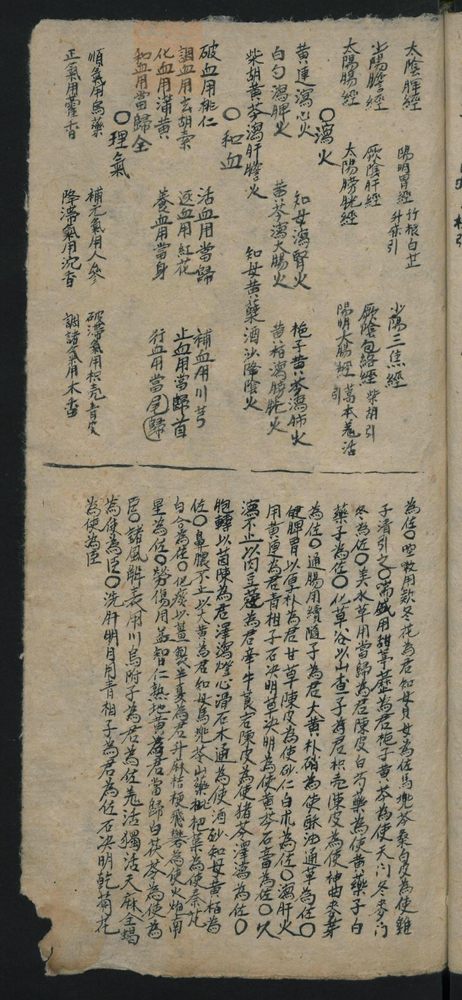 太陰脾經 陽明胃經 升麻引 少陽三焦經
少陽膽經 厥陰肝經 厥陰包絡經 柴胡引
太陽腸經 太陽膀胱經 陽明大腸經
〇瀉火
黄連瀉心火 知母瀉腎火 梔子黄芩瀉肺火
白勺瀉脾火 黄芩瀉大腸火 黄栢瀉膀胱火
柴胡黄芩瀉肝膽火 知母黄蘗酒沙降陰火
〇和血
破血用桃仁 活血用當歸 補血用川芎
調血用玄胡索 返血用紅花 止血用當歸首
化血用蒲黄 養血用當身 行血用當尾歸
和血用當歸全
〇理氣
順氣用烏藥 補元氣用人參 破滯氣用枳壳青皮
正氣用霍香 降滯氣用沉香 調諸氣用木香
為佐〇咳嗽用欵冬花為君知母貝母為佐馬兜苓桑白皮為使
子清引之〇用甜葶藶為君梔子黄芩為使天门冬麥门
冬為佐〇美水草用當歸為君陳皮白芍藥為使黄藥子白
藥子為佐〇化草谷以山查子為君枳壳陳皮為使神曲麥芽
為佐〇通腸用續隨子為君大黄朴硝為使酥油通草為佐〇
健脾胃以厚朴為君甘草陳皮為使砂仁白朮為佐〇瀉肝火
用黄連為君青相子石决明草决明為使黄芩石膏為佐〇久
瀉不止以肉豆蔻為君牽牛良言陳皮為使猪苓澤瀉為佐〇
胞轉以茵陳為君澤瀉燈心滑石木通為使酒砂知母黄栢為
佐〇鼻膿不止以大黄為君知母馬兜苓山藥枇杷葉為使奈花
白合為佐〇化痰以薑製半夏為君升麻桔梗飛礬為使火炮南
星為佐〇勞傷用益智仁熟地黄為君當歸白茯苓為使為
臣〇諸風解表用川烏附子為君為佐羗活獨活天麻全蝎
為使為臣〇洗肝明月用青相子為君為佐石决明乾菊花
為使為臣